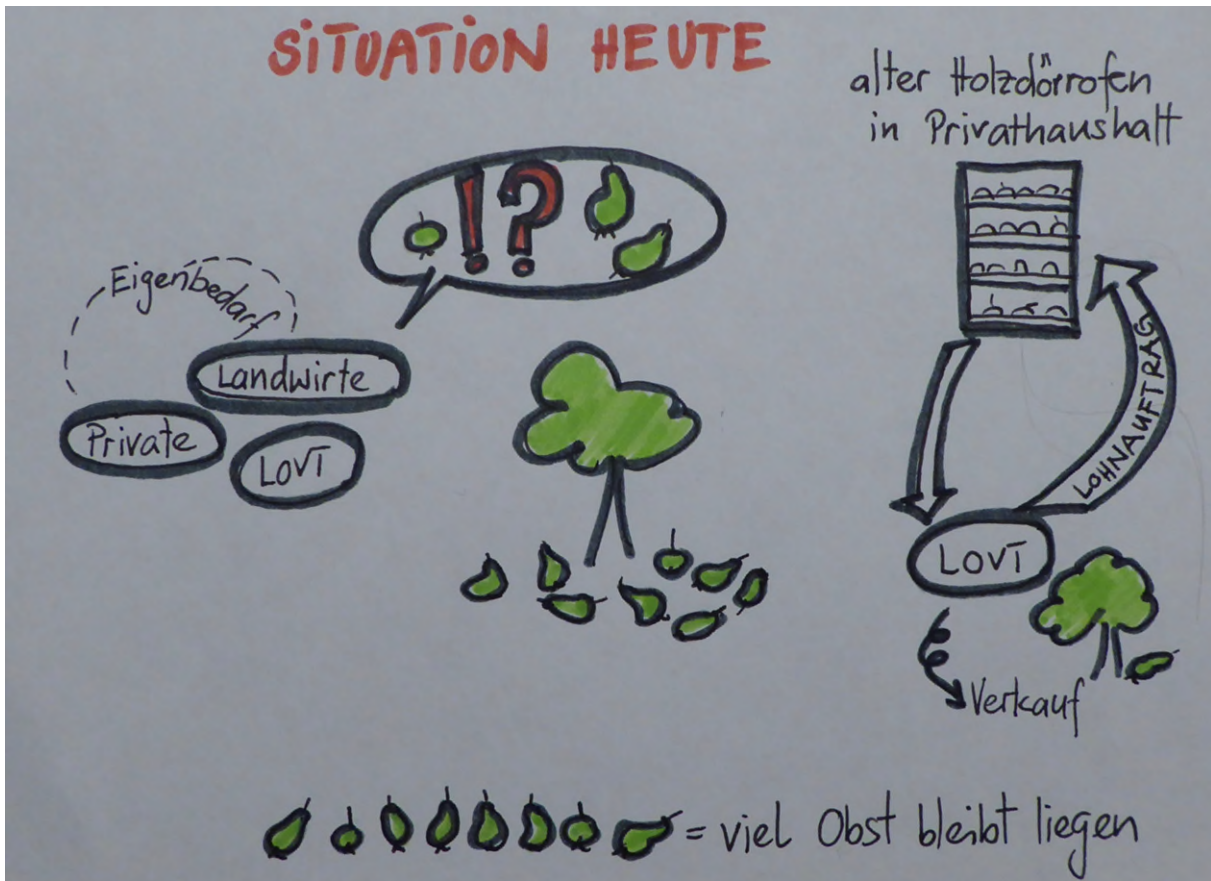 SITUATION HEUTE
alter Holzdörrofen
in Privathaushalt
!?
Eigenbedarf
Landwirte
Private
LOVT
LOHNAUFTRAG
LOVT
Verkauf
= viel Obst bleibt liegen